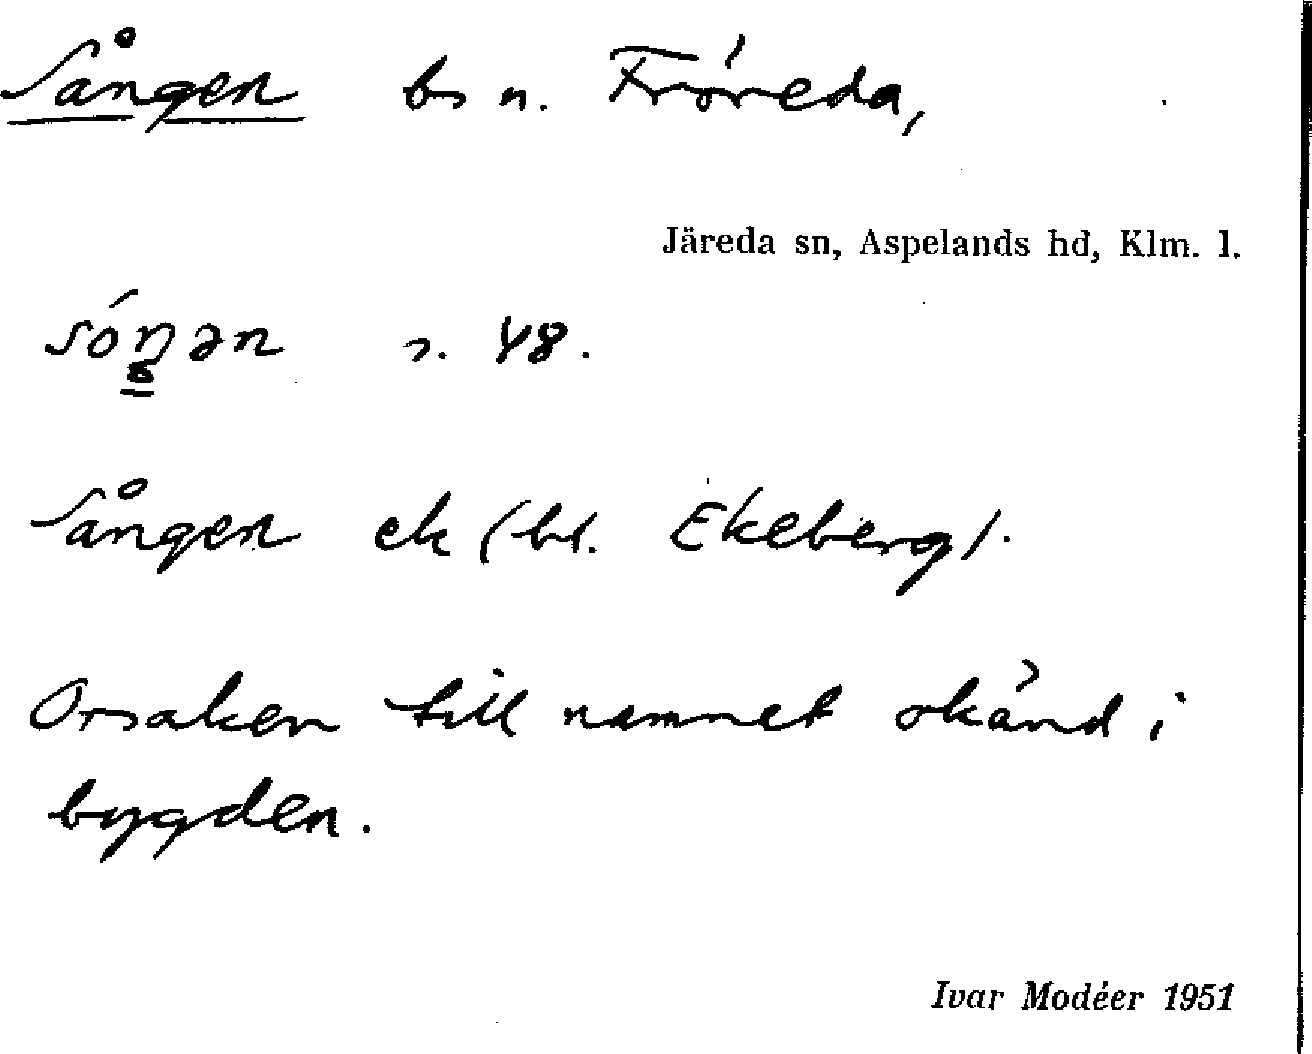 Sången bs n. Fröreda,
Järeda sn, Aspelands hd, Klm. l.
sóŋən s. 48.
Sången ek (bl. Ekeberg).
Orsaken till namnet okänd i
bygden.
Ivar Modéer 1951